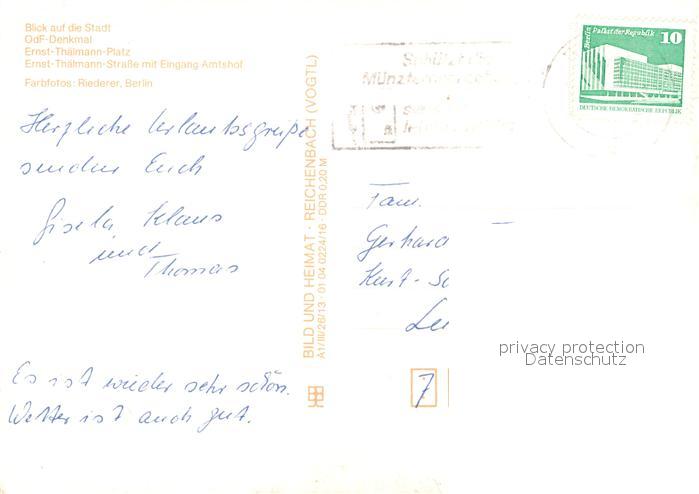 Blick auf die Stadt
OdF-Denkmal
Ernst-Thälmann-Platz
Ernst-Thälmann-Straße mit Eingang Amtshof
Farbfotos: Riederer, Berlin
Herzliche Urlaubsgrüße
senden Euch
Gisela, Klaus
und
Thomas
Es ist wieder sehr schön.
Wetter ist auch gut.
BILD UND HEIMAT · REICHENBACH (VOGTL)
A1/III/26/13 01 04 0224/16 · DDR 0,20 M
Berlin Palast der Republik 10
DEUTSCHE DEMOKRATISCHE REPUBLIK
Fam.
Gerhard
Kurt-Sc
7
privacy protection
Datenschutz